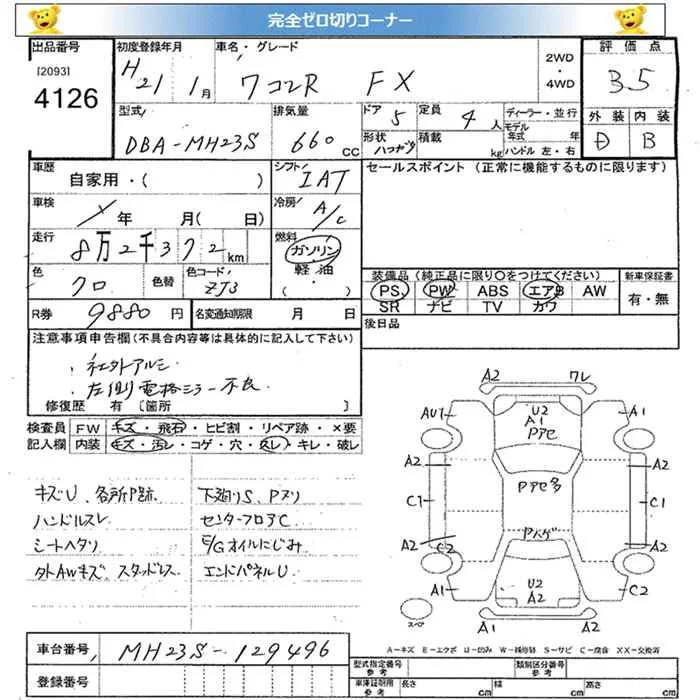 完全ゼロ切りコーナー
出品番号 初度登録年月 車名・グレード 2WD・4WD 評価点
[2093]
4126
H21 1月 ワゴンR FX 3.5
型式 排気量 ドア 5 定員 4人 ディーラー・並行 外装 内装
DBA-MH23S 660cc 形状 ハコガタ 積載 kg モデル年式 年 ハンドル 左・右 D B
車歴 自家用・( ) シフト IAT セールスポイント (正常に機能するものに限ります)
車検 年 月( 日) 冷房 A/C
走行 8万2千372km 燃料 ガソリン・軽油・( )
色 クロ 色替 色コード ZJ3
装備品 (純正品に限り○をつけてください) 新車保証書
PS PW ABS エアB AW 有・無
SR ナビ TV カワ
R券 9880円 名変通期限 月 日 後日品
注意事項申告欄 (不具合内容等は具体的に記入して下さい)
・社外アルミ
・左側電格ミラー不良
修復歴 有 [箇所 ]
検査員 FW キズ・飛石・ヒビ割・リペア跡・×要
記入欄 内装 キズ・汚レ・コゲ・穴・スレ・キレ・破レ
キズU、各所P跡 下廻りS、Pヌリ
ハンドルスレ センターフロアC
シートヘタリ E/Gオイルにじみ
外AWキズ、スタッドレス エンドパネルU
A2 ワレ
AU1 U2 A1
A1 Pアセ
A2 Pアセ多 A2
C1 C1
A2 C2 Pハゲ A2
A1 U2 A2 C2
スペア A1 A2
A=キズ E=エクボ U=凹み W=補修跡 S=サビ C=腐食 XX=交換済
車台番号 MH23S-129496
登録番号
型式指定番号 参考 類別区分番号 参考
車庫証明用 参考 長さ cm 幅 cm 高さ cm